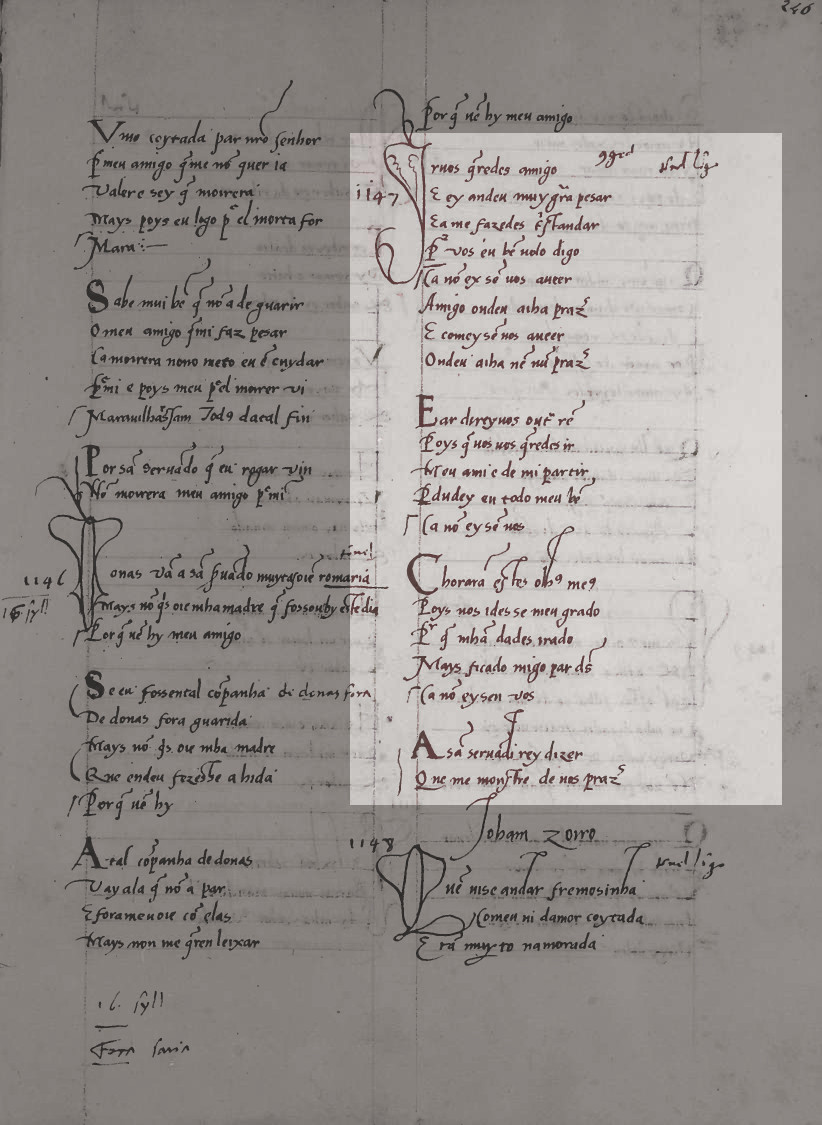 246
Umo coytada par nr̃o senhor
P̃ meu amigo q̃ me nõ quer ia
Valer e sey q̃ moirera
Mays poys eu logo p̃ el moirer for
Mara :—
Sabe mui bẽ q̃ nõ a de guarir
O meu amigo q̃ mi faz pesar
Ca moirera nono meto eu ẽ cuydar
P̃ mi e poys meu p̃ el moirer vi
Maravilhar sam Tod9 da cal fin
Por sã servãdo q̃ eu rogar vin
Nõ moirera meu amigo p̃ mi
1146
16 syll
Donas vã a sã servãdo muytas oie romaria
Mays nõ q̃s oie mha madre q̃ fosseu hy este dia
Por q̃ uẽ hy meu amigo
Se eu fossen tal cõpanha de donas fora
De donas fora guarida
Mays nõ q̃s oie mha madre
Que endeu fezesse a hida
Por q̃ uẽ hy
A tal cõpanha de donas
Uay ala q̃ nõ a par
E forameu oie cõ elas
Mays non me q̃ren leixar
16 syll
Por q̃ uẽ hy meu amigo
1147
Iruos q̃redes amigo
E ey andeu muy grã pesar
Ea me fazedes ẽstandar
P̃ vos eu bẽ uolo digo
Ca nõ ex sẽ uos aueer
Amigo ondeu aiha praz̃
E comey sẽ uos aueer
Ondeu aiha nẽ nũ praz̃
E ar direyuos out̃ rẽ
Poys q̃ uos uos q̃redes ir
Meu ami e de mi partir
Pdudey eu todo meu bẽ
Ca nõ ey sẽ uos
Chorara estes olh9 me9
Poys uos ides sem meu grado
P̃ q̃ mhã dades irado
Mays ficado migo par ds̃
Ca nõ ey sen vos
A sã servãdi rey dizer
Que me monstre de uos praz̃
Joham Zorro
1148
Quẽ uise andar fremosinha
Comeu ui damor coytada
E tã muyto namorada